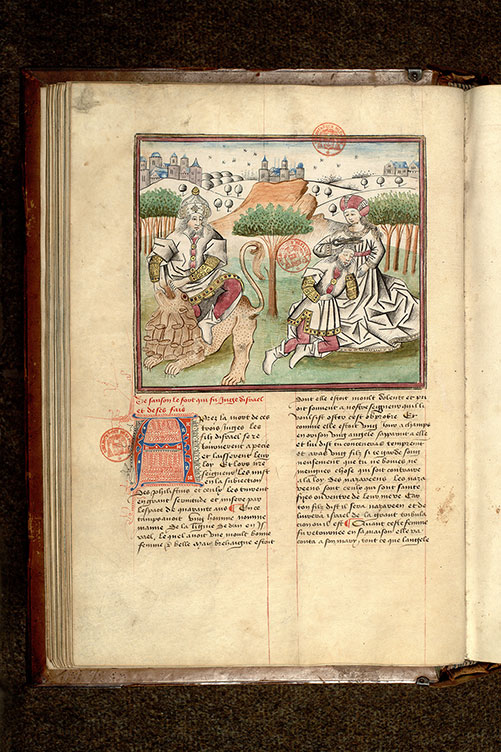 De sanson le fort qui fu Juge disrael
et de ses fais
Apres la mort de ces
trois Juges les
filz disrael se re
tournerent a pechie
et laisserent leur
loy Et lors nre
seigneur les mist
en la subiection
des philistins et ceulx les tindrent
en grant servitude et misere par
lespace de quarante ans En ce
temps avoit ung homme nomme
manue De la lignie de dan en Js
rael lequel avoit une moult bonne
femme et belle Mais brehaigne estoit
Dont elle estoit moult dolente et pri
oit souvent a nostre seigneur quil li
voulsist oster cest obprobre Et
comme elle estoit ung jour a champs
en orison ung angele sapparut a elle
et lui dist tu concevras temprement
et avras ung filz si te garde song
neusement que tu ne boives ne
mengues chose qui soit contraire
a la loy des nazareens les naza
reens sont ceulx qui sont sainte
fies ou ventre de leur mere Car
ton filz dist il sera nazareen et de
livrera israel de la grant tribula
tion ou il est Quant ceste femme
fu retournee en sa maison elle ra
conta a son mary tout ce que langele